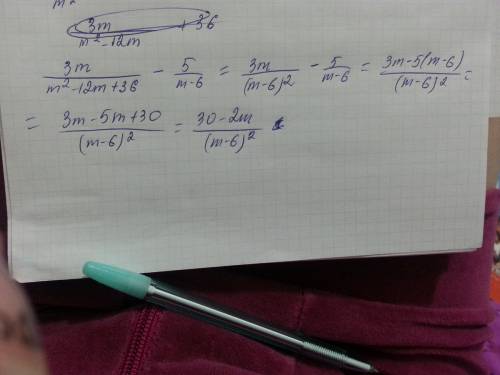 m²
3m + 36
m² - 12m
3m/(m² - 12m + 36) - 5/(m-6) = 3m/(m-6)² - 5/(m-6) = (3m - 5(m-6))/(m-6)² =
= (3m - 5m + 30)/(m-6)² = (30 - 2m)/(m-6)²